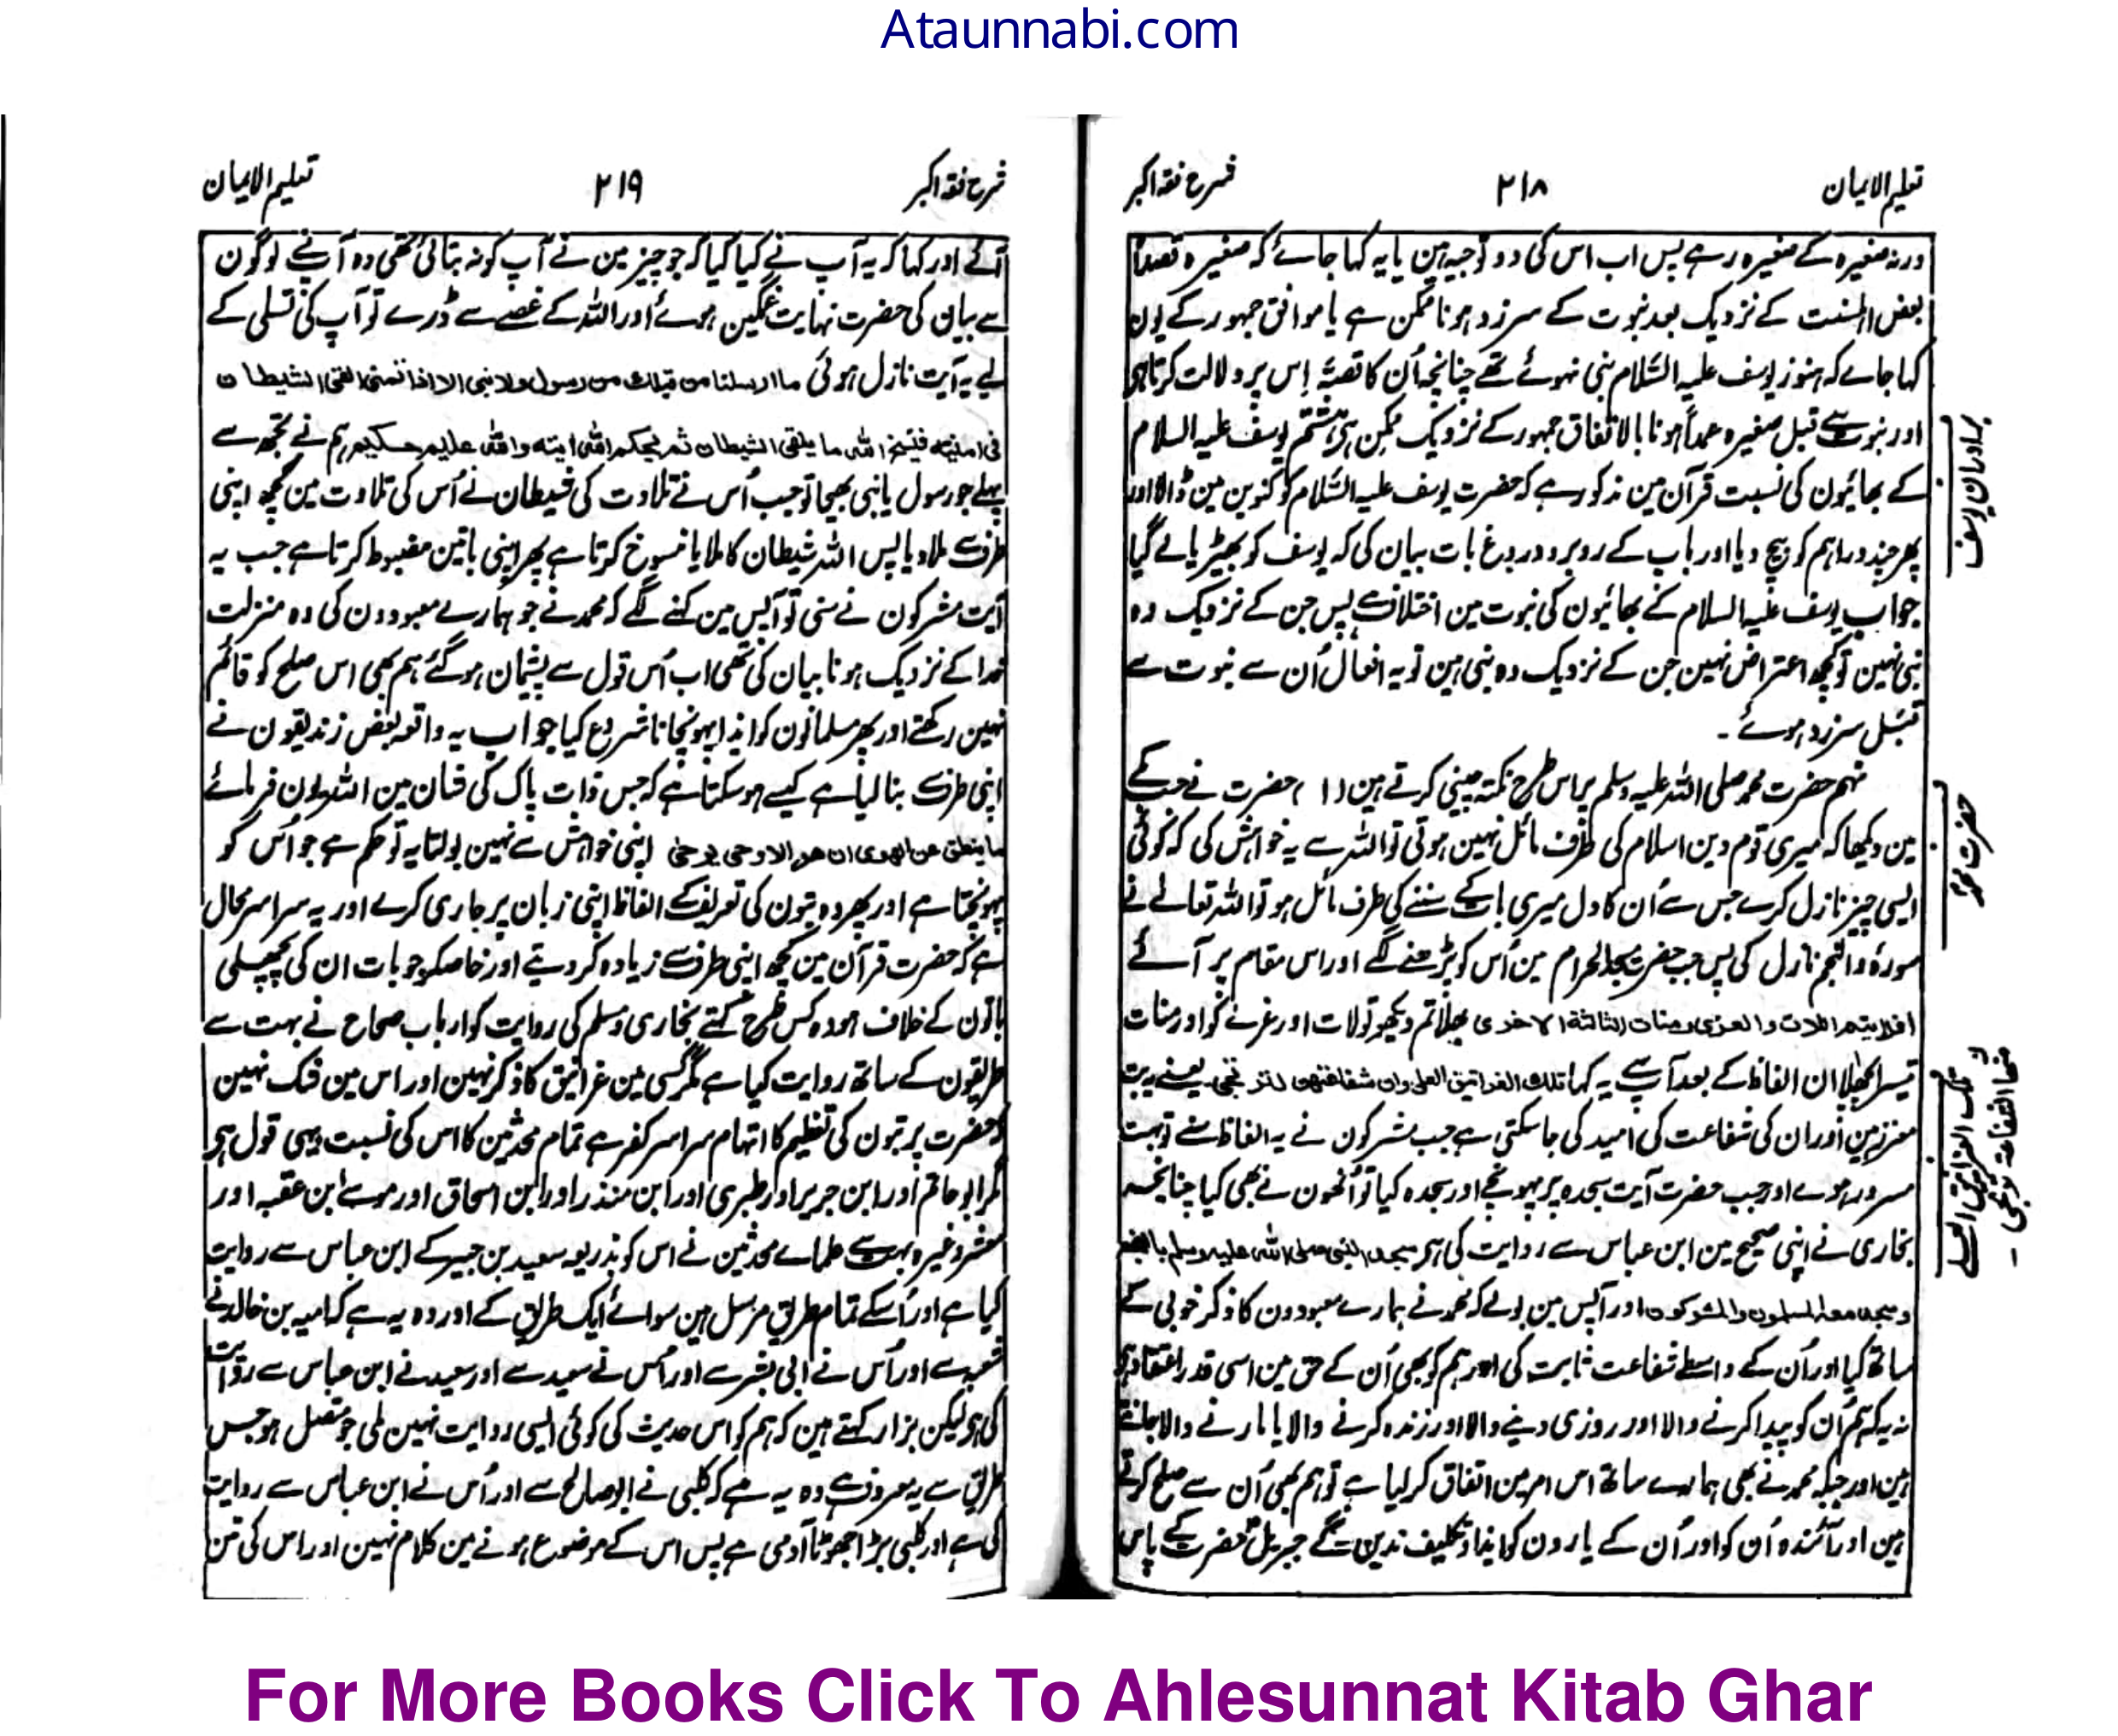 Ataunnabi.com
تعلیم الایمان
۲۱۸
شرح فقہ اکبر
ورنہ صغیرہ کے صغیرہ رہے پس اب اس کی دو توجیہ ہین یا یہ کہا جائے کہ صغیرہ قصداً
بعض اہلسنت کے نزدیک بعد نبوت کے سرزد ہونا ممکن ہے یا موافق جمہور کے یون
کہا جاے کہ ہنوز یوسف علیہ السّلام نبی نہوئے تھے چنانچہ اُن کا قصّہ اِس پر دلالت کرتا ہی
اور نبوت سے قبل صغیرہ عمداً ہونا بالاتفاق جمہور کے نزدیک ممکن ہی ہشتم یوسف علیہ السلام
کے بھائیون کی نسبت قرآن مین مذکور ہے کہ حضرت یوسف علیہ السّلام کو کنوین مین ڈالا اور
پھر چند دراہم کو بیچ دیا اور باپ کے روبرو دروغ بات بیان کی کہ یوسف کو بھیڑیا لے گیا
جواب یوسف علیہ السلام کے بھائیون کی نبوت مین اختلاف ہے پس جن کے نزدیک وہ
نبی نہین تو کچھ اعتراض نہین جن کے نزدیک وہ نبی ہین تو یہ افعال اُن سے نبوت سے
قبل سرزد ہوئے ۔
نہم حضرت محمد صلی اللہ علیہ وسلم پر اس طرح نکتہ چینی کرتے ہین (۱) حضرت نے جب کے
مین دیکھا کہ میری قوم دین اسلام کی طرف مائل نہین ہوتی تو اللہ سے یہ خواہش کی کہ کوئی
ایسی چیز نازل کرے جس سے اُن کا دل میری بات کے سننے کی طرف مائل ہو تو اللہ تعالے نے
سورۂ والنجم نازل کی پس جب حضرت مسجد الحرام مین اُس کو پڑھنے لگے اور اس مقام پر آئے
افرایتم اللات والعزی ومنات الثالثة الاخری بھلا تم دیکھو تو لات اور عزے کو اور منات
تیسرا پچھلا ان الفاظ کے بعد آپ نے یہ کہا تلك الغرانیق العلی وان شفاعتهن لترتجی یعنے یہ بت
معزز ہین اور ان کی شفاعت کی امید کی جا سکتی ہے جب مشرکون نے یہ الفاظ سنے تو بہت
مسرور ہوے اور جب حضرت آیت سجدہ پر پہونچے اور سجدہ کیا تو اُنھون نے بھی کیا چنانچہ
بخاری نے اپنی صحیح مین ابن عباس سے روایت کی ہی سجد النبی صلی الله علیه وسلم بالنجم
وسجد معه المسلمون والمشرکون اور آپس مین بولے کہ محمد نے ہمارے معبودون کا ذکر خوبی کے
ساتھ کیا اور اُن کے واسطے شفاعت ثابت کی اور ہم کو بھی اُن کے حق مین اسی قدر اعتقاد ہی
نہ یہ کہ ہم اُن کو پیدا کرنے والا اور روزی دینے والا اور زندہ کرنے والا یا مارنے والا جانتے
ہین اور جبکہ محمد نے بھی ہمارے ساتھ اس امر مین اتفاق کر لیا ہے تو ہم بھی اُن سے صلح کرتے
ہین اور آئندہ اُن کو اور اُن کے یارون کو ایذا و تکلیف ندین گے جبریل حضرت کے پاس
برادران یوسف
حضرت محمد
تلك الغرانیق العلے
منها الشفاعة ترتجی ۔
شرح فقہ اکبر
۲۱۹
تعلیم الایمان
آئے اور کہا کہ یہ آپ نے کیا کیا کہ جو چیز مین نے آپ کو نہ بتائی تھی وہ آپ نے لوگون
سے بیان کی حضرت نہایت غمگین ہوے اور اللہ کے غصے سے ڈرے تو آپ کی تسلی کے
لیے یہ آیت نازل ہوئی ما ارسلنا من قبلك من رسول ولا نبی الا اذا تمنی القی الشیطان
فی امنیته فینسخ الله ما یلقی الشیطان ثم یحکم الله ایته والله علیم حکیم ہم نے تجھ سے
پہلے جو رسول یا نبی بھیجا تو جب اُس نے تلاوت کی شیطان نے اُس کی تلاوت مین کچھ اپنی
طرف سے ملا دیا پس اللہ شیطان کا ملایا منسوخ کرتا ہے پھر اپنی باتین مضبوط کرتا ہے جب یہ
آیت مشرکون نے سنی تو آپس مین کہنے لگے کہ محمد نے جو ہمارے معبودون کی وہ منزلت
خدا کے نزدیک ہونا بیان کی تھی اب اُس قول سے پشیمان ہو گئے ہم بھی اس صلح کو قائم
نہین رکھتے اور پھر مسلمانون کو ایذا پہونچانا شروع کیا جواب یہ واقعہ بعض زندیقون نے
اپنی طرف سے بنا لیا ہے کیسے ہو سکتا ہے کہ جس ذات پاک کی شان مین اللہ یون فرمائے
ما ینطق عن الهوی ان هو الا وحی یوحی اپنی خواہش سے نہین بولتا یہ تو حکم ہے جو اُس کو
پہونچتا ہے اور پھر وہ بتون کی تعریف کے الفاظ اپنی زبان پر جاری کرے اور یہ سراسر محال
ہے کہ حضرت قرآن مین کچھ اپنی طرف سے زیادہ کر دیتے اور خاصکر جو بات ان کی پچھلی
باتون کے خلاف ہو وہ کس طرح کہتے بخاری و مسلم کی روایت کو ارباب صحاح نے بہت سے
طریقون کے ساتھ روایت کیا ہے مگر کسی مین غرانیق کا ذکر نہین اور اس مین شک نہین
کہ حضرت پر بتون کی تعظیم کا اتہام سراسر کفر ہے تمام محدثین کا اس کی نسبت یہی قول ہی
مگر ابو حاتم اور ابن جریر اور طبری اور ابن منذر اور ابن اسحاق اور موسے ابن عقبہ اور
معشر وغیرہ بہت سے علماے محدثین نے اس کو بذریعہ سعید بن جبیر کے ابن عباس سے روایت
کیا ہے اور اُسکے تمام طریق مرسل ہین سوائے ایک طریق کے اور وہ یہ ہے کہ امیہ بن خالد نے
شعبہ سے اور اُس نے ابی بشر سے اور اُس نے سعید سے اور سعید نے ابن عباس سے روایت
کی ہی لیکن بزار کہتے ہین کہ ہم کو اس حدیث کی کوئی ایسی روایت نہین ملی جو متصل ہو جس
طریق سے یہ معروف ہے وہ یہ ہے کہ کلبی نے ابو صالح سے اور اُس نے ابن عباس سے روایت
کی ہے اور کلبی بڑا جھوٹا آدمی ہے پس اس کے موضوع ہونے مین کلام نہین اور اس کی
For More Books Click To Ahlesunnat Kitab Ghar